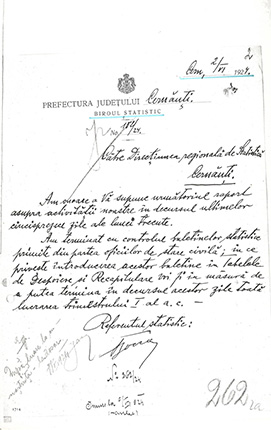 Cern, 2/VI 1924.
PREFECTURA JUDEȚULUI Cernăuți.
BIROUL STATISTIC
No. 184/24.
Către Direcțiunea regională de Statistică
Cernăuți.
Am onoare a Vă supune următoriul raport
asupra activității noastre în decursul ultimelor
cincisprezece zile ale lunei trecute.
Am terminat cu controlul buletinelor statistice
primite din partea oficiilor de stare civilă; în ce
privește introducerea acestor buletine în tabelele
de Despoiere și Recapitulare voi fi în măsură de
a putea termina în decursul acestor zile toată
lucrarea trimestrului I al a. c. —
Referentul statistic:
262